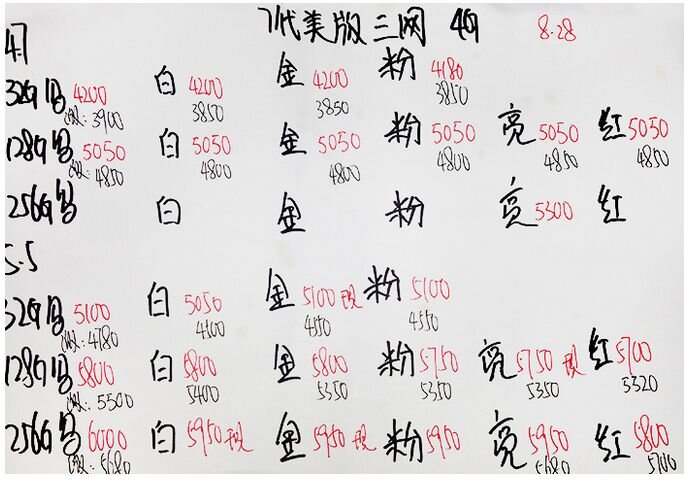 7代美版三网 4G 8.28
4.7
32G 黑 4200 白 4200 金 4200 粉 4180
3900 3850 3850 3850
128G 黑 5050 白 5050 金 5050 粉 5050 亮 5050 红 5050
4850 4800 4800 4800 4850 4850
256G 黑 白 金 粉 亮 5300 红
5.5
32G 黑 5100 白 5050 金 5100 现 粉 5100
4780 4500 4550 4550
128G 黑 5800 白 5800 金 5800 粉 5750 亮 5750 现 红 5700
5500 5400 5350 5350 5350 5320
256G 黑 6000 白 5950 现 金 5950 现 粉 5950 亮 5950 红 5800
5680 5680 5700